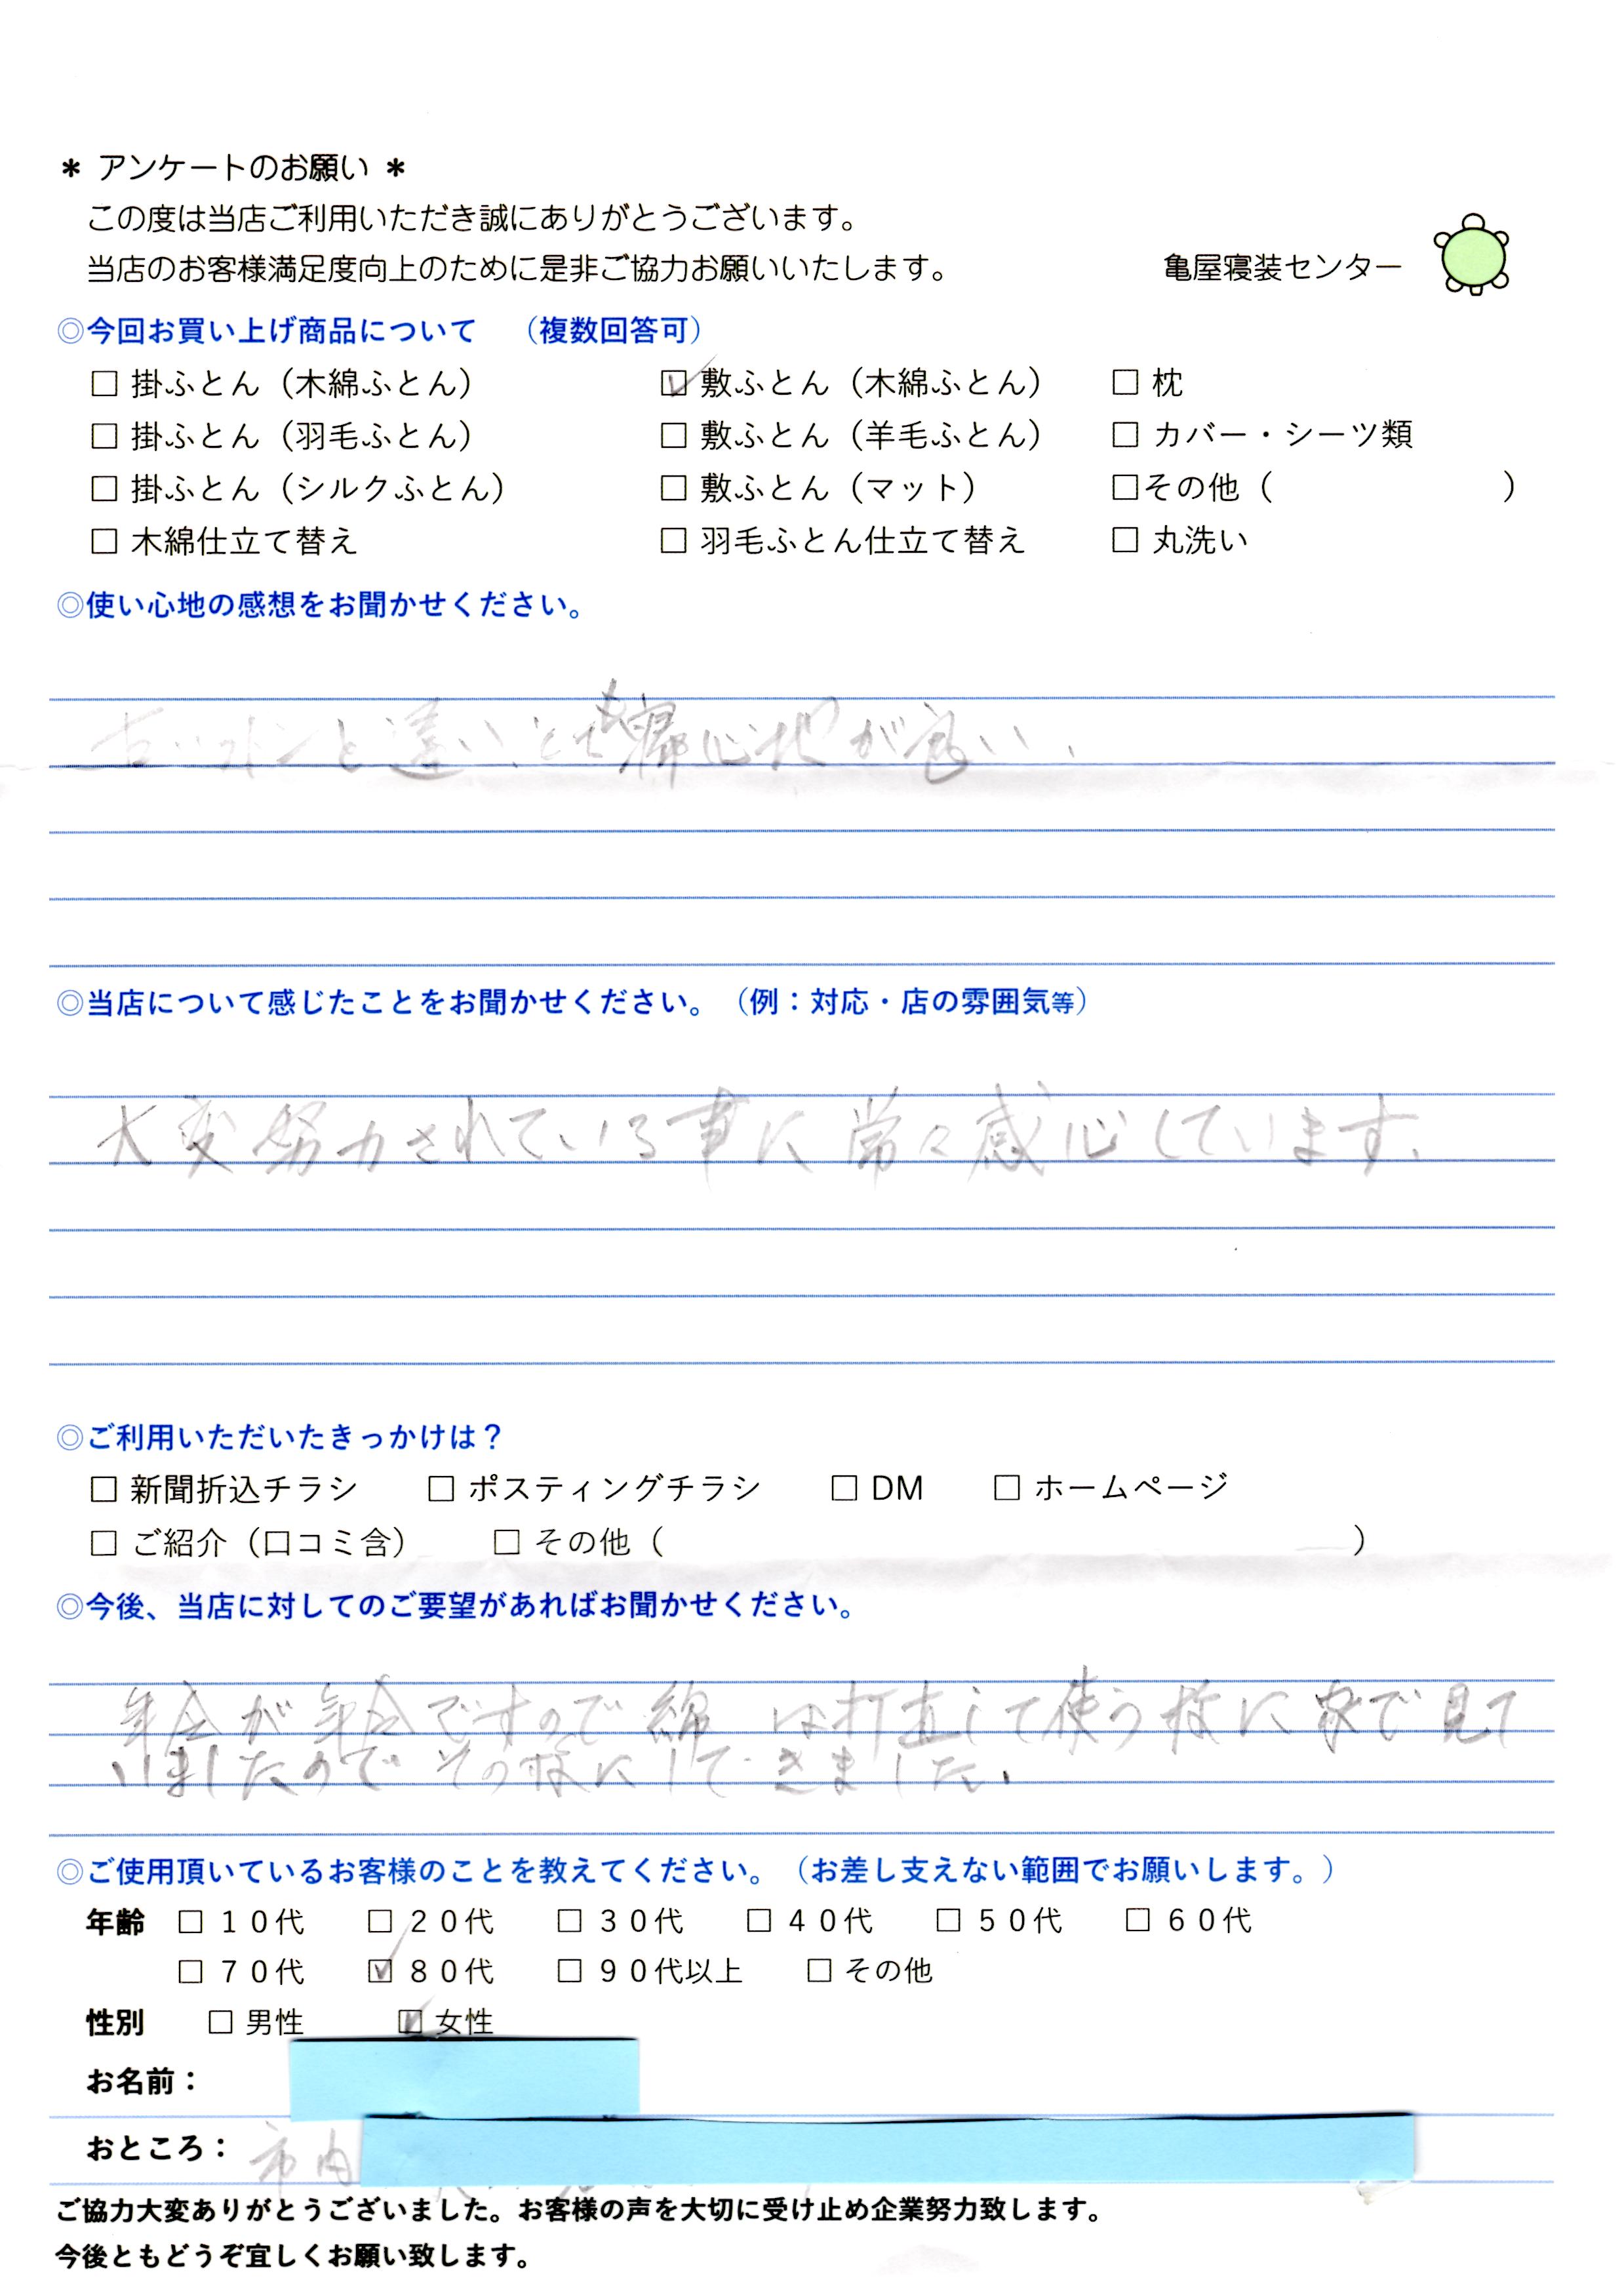 ＊ アンケートのお願い ＊
この度は当店ご利用いただき誠にありがとうございます。
当店のお客様満足度向上のために是非ご協力お願いいたします。 亀屋寝装センター
◎今回お買い上げ商品について （複数回答可）
□ 掛ふとん（木綿ふとん） ☑ 敷ふとん（木綿ふとん） □ 枕
□ 掛ふとん（羽毛ふとん） □ 敷ふとん（羊毛ふとん） □ カバー・シーツ類
□ 掛ふとん（シルクふとん） □ 敷ふとん（マット） □その他（ ）
□ 木綿仕立て替え □ 羽毛ふとん仕立て替え □ 丸洗い
◎使い心地の感想をお聞かせください。
古いフトンと違いとても寝心地が良い、
◎当店について感じたことをお聞かせください。（例：対応・店の雰囲気等）
大変努力されている事に常々感心しています、
◎ご利用いただいたきっかけは？
□ 新聞折込チラシ □ ポスティングチラシ □ DM □ ホームページ
□ ご紹介（口コミ含） □ その他（ ）
◎今後、当店に対してのご要望があればお聞かせください。
年令が年令ですので綿は打直して使う様に家で見て
いましたのでその様にしてきました、
◎ご使用頂いているお客様のことを教えてください。（お差し支えない範囲でお願いします。）
年齢 □ １０代 □ ２０代 □ ３０代 □ ４０代 □ ５０代 □ ６０代
□ ７０代 ☑ ８０代 □ ９０代以上 □ その他
性別 □ 男性 ☑ 女性
お名前：
おところ： 市内
ご協力大変ありがとうございました。お客様の声を大切に受け止め企業努力致します。
今後ともどうぞ宜しくお願い致します。